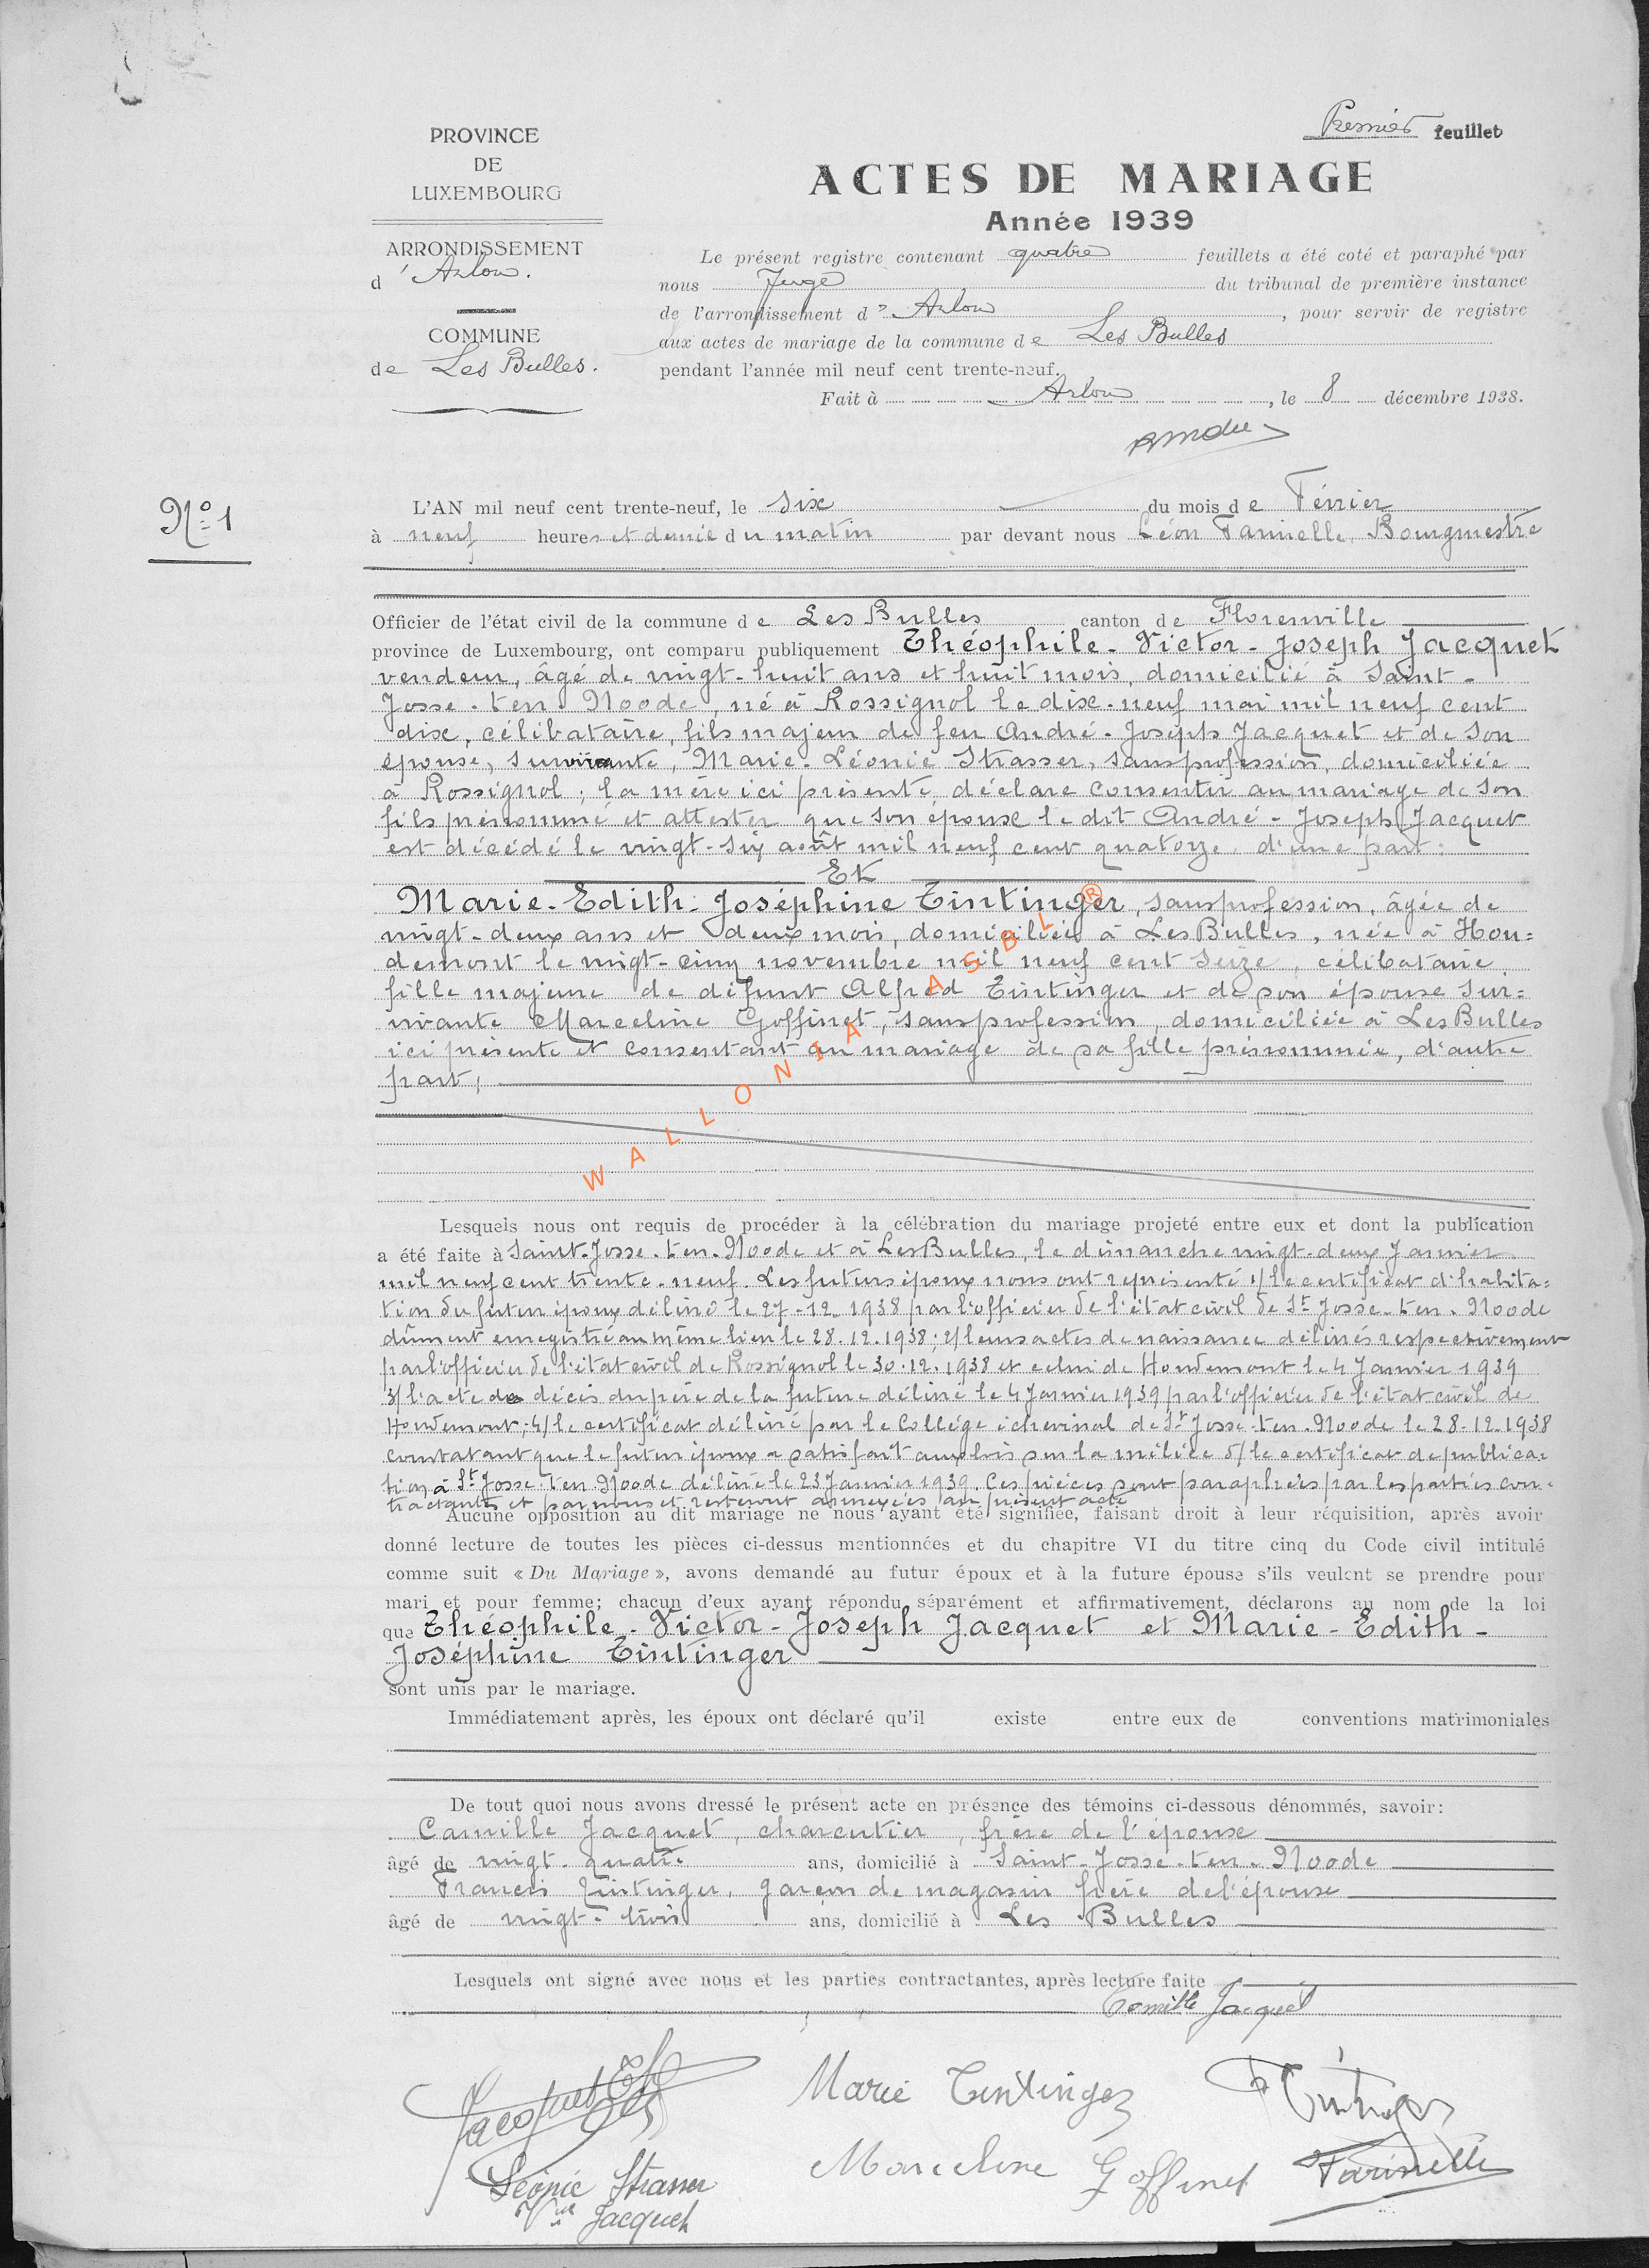 Premier feuillet
PROVINCE
DE
LUXEMBOURG
ARRONDISSEMENT
d'Arlon.
COMMUNE
de Les Bulles.
ACTES DE MARIAGE
Année 1939
Le présent registre contenant quatre feuillets a été coté et paraphé par
nous Juge du tribunal de première instance
de l'arrondissement d'Arlon, pour servir de registre
aux actes de mariage de la commune de Les Bulles
pendant l'année mil neuf cent trente-neuf.
Fait à Arlon, le 8 décembre 1938.
No 1
L'AN mil neuf cent trente-neuf, le six du mois de Février
à neuf heures et demie du matin par devant nous Léon Farinelle, Bourgmestre
Officier de l'état civil de la commune de Les Bulles canton de Florenville
province de Luxembourg, ont comparu publiquement Théophile-Victor-Joseph Jacquet
vendeur, âgé de vingt-huit ans et huit mois, domicilié à Saint-
Josse-ten-Noode, né à Rossignol le dix-neuf mai mil neuf cent
dix, célibataire, fils majeur de feu André-Joseph Jacquet et de son
épouse, survivante, Marie-Léonie Strasser, sans profession, domiciliée
à Rossignol; la mère ici présente, déclare consentir au mariage de son
fils prénommé et attester que son époux le dit André-Joseph Jacquet
est décédé le vingt-six août mil neuf cent quatorze, d'une part:
Et
Marie-Edith-Joséphine Tintinger, sans profession, âgée de
vingt-deux ans et deux mois, domiciliée à Les Bulles, née à Hou=
demont le vingt-cinq novembre mil neuf cent seize, célibataire,
fille majeure de défunt Alfred Tintinger et de son épouse sur=
vivante Marceline Goffinet, sans profession, domiciliée à Les Bulles
ici présente et consentant au mariage de sa fille prénommée, d'autre
part,
WALLONIA ASBL ®
Lesquels nous ont requis de procéder à la célébration du mariage projeté entre eux et dont la publication
a été faite à Saint-Josse-ten-Noode et à Les Bulles, le dimanche vingt-deux Janvier
mil neuf cent trente-neuf. Les futurs époux nous ont représenté 1/ le certificat d'habita=
tion du futur époux délivré le 27-12-1938 par l'officier de l'état civil de St Josse-ten-Noode
dûment enregistré au même lieu le 28.12.1938; 2/ leurs actes de naissance délivrés respectivement
par l'officier de l'état civil de Rossignol le 30.12.1938 et celui de Houdemont le 4 Janvier 1939
3/ l'acte de décès du père de la future délivré le 4 Janvier 1939 par l'officier de l'état civil de
Houdemont; 4/ le certificat délivré par le Collège échevinal de St Josse-ten-Noode le 28-12-1938
constatant que le futur époux a satisfait aux lois sur la milice 5/ le certificat de publica=
tion à St Josse-ten-Noode délivré le 23 Janvier 1939. Ces pièces sont paraphées par les parties con=
tractantes et par nous et resteront annexées au présent acte
Aucune opposition au dit mariage ne nous ayant été signifiée, faisant droit à leur réquisition, après avoir
donné lecture de toutes les pièces ci-dessus mentionnées et du chapitre VI du titre cinq du Code civil intitulé
comme suit « Du Mariage », avons demandé au futur époux et à la future épouse s'ils veulent se prendre pour
mari et pour femme; chacun d'eux ayant répondu séparément et affirmativement, déclarons au nom de la loi
que Théophile-Victor-Joseph Jacquet et Marie-Edith-
Joséphine Tintinger
sont unis par le mariage.
Immédiatement après, les époux ont déclaré qu'il existe entre eux de conventions matrimoniales
De tout quoi nous avons dressé le présent acte en présence des témoins ci-dessous dénommés, savoir:
Camille Jacquet, charcutier, frère de l'époux
âgé de vingt-quatre ans, domicilié à Saint-Josse-ten-Noode
Francis Tintinger, garçon de magasin frère de l'épouse
âgé de vingt-trois ans, domicilié à Les Bulles
Lesquels ont signé avec nous et les parties contractantes, après lecture faite
Camille Jacquet
Jacquet
Marie Tintinger
Tintinger
Léonie Strasser
Vve Jacquet
Marceline Goffinet
Farinelle